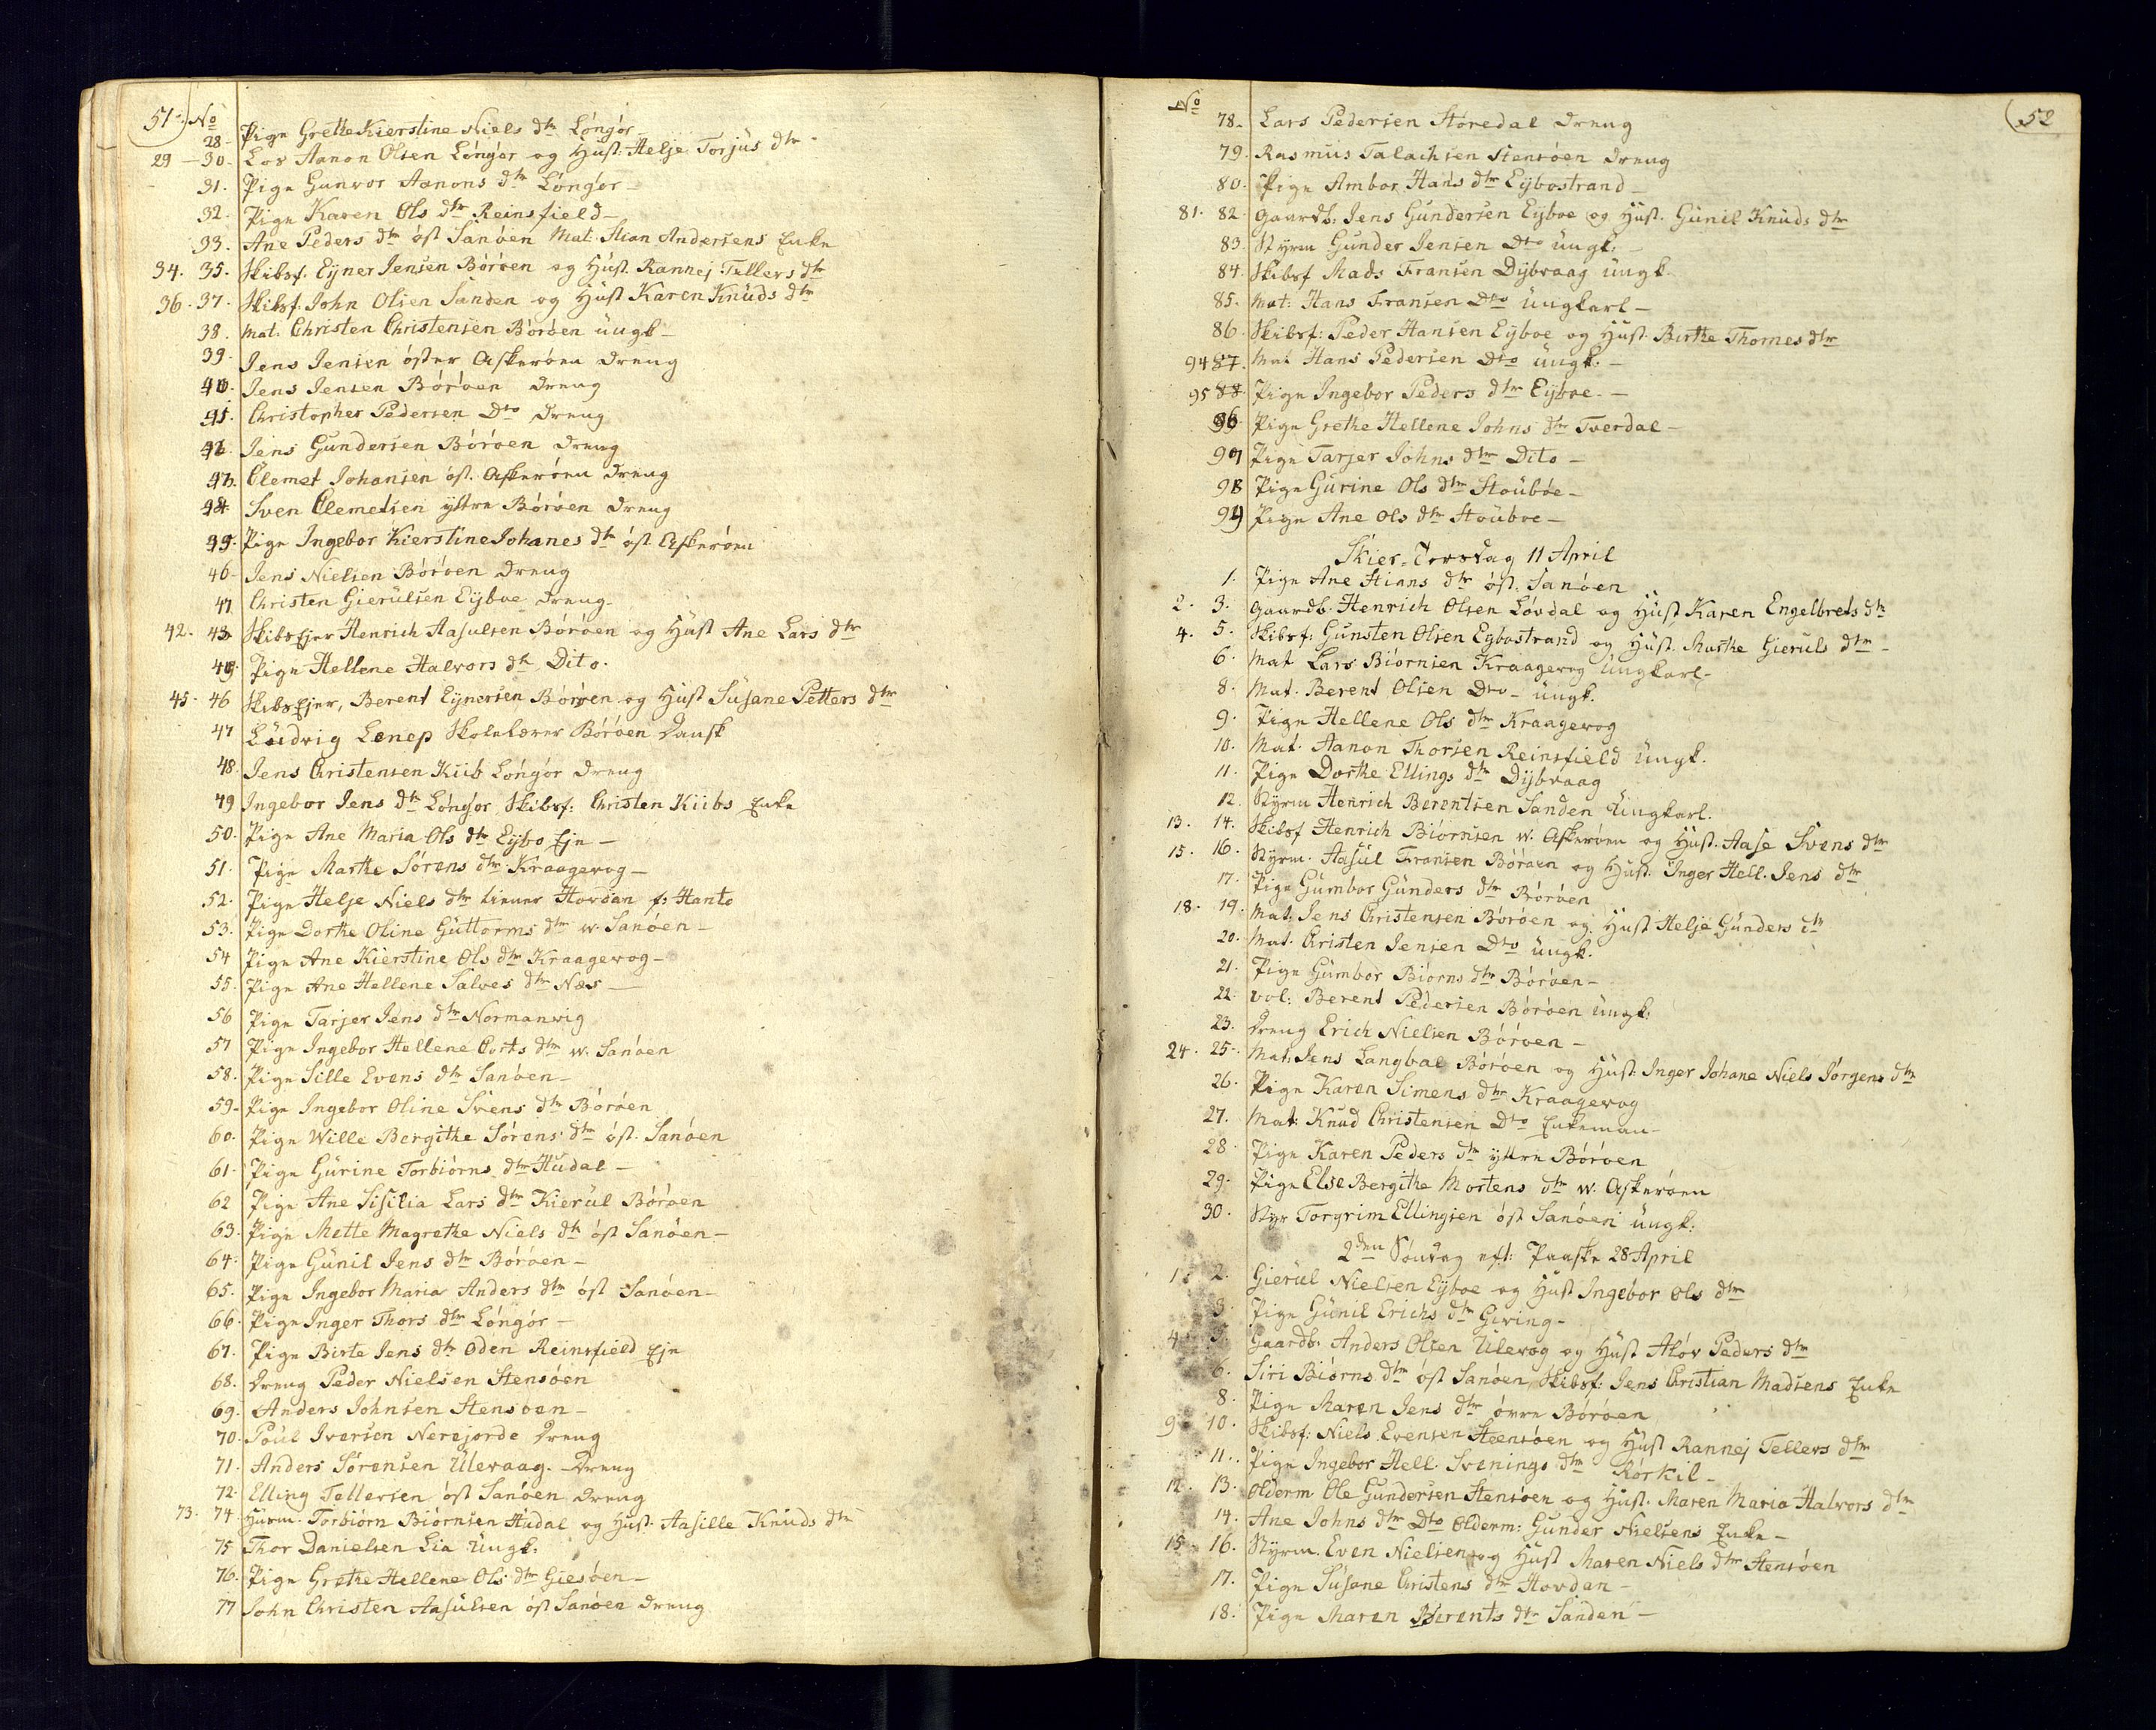 51. No
28- Pige Grethe Kierstine Niels dtr Lóngór
29 - 30- Los Aanon Olsen Lóngór og Hust: Helje Torjus dtr
31. Pige Gunvor Aanons dtr Lóngór -
32. Pige Karen Ols dtr Reinsfield -
33. Ane Peders dtr óst Sanóen Mat. Stian Andersens Enke
34. 35. Skibsf. Eyner Jensen Bóróen og Hust. Rannej Tellers dtr
36. 37. Skibsf. John Olsen Sanden og Hust Karen Knuds dtr
38. Mat. Christen Christensen Bóróen ungk -
39. Jens Jensen óster Askeróen Dreng
40. Jens Jensen Bóróen Dreng
41. Christopher Pedersen Dto Dreng
42. Jens Gundersen Bóróen Dreng
43. Clemet Johansen óst. Askeróen Dreng
44 Sven Clemetsen yttre Bóróen Dreng
45. Pige Ingebor Kierstine Johanes dtr óst. Askeróen
46- Jens Nielsen Bóróen Dreng
47 Christen Gierulsen Eyboe Dreng.
42. 43 SkibsEjer Henrich Aasulsen Bóróen og Hust Ane Lars dtr
44. Pige Hellene Halvors dtr Dito.
45. 46 SkibsEjer, Berent Eynersen Bóróen og Hust Susane Petters dtr
47 Ludvig Lenep Skolelærer Bóróen Dansk
48. Jens Christensen Kiib Lóngór Dreng
49 Ingebor Jens dtr Lóngór Skibsf: Christen Kiibs Enke
50. Pige Ane Maria Ols dtr Eybo Eje -
51. Pige Marthe Sórens dtr Kraagevog -
52. Pige Helje Niels dtr tiener Hovdan f: Hanto
53. Pige Dorthe Oline Guttorms dtr w. Sanóen -
54 Pige Ane Kierstine Ols dtr Kraagevog -
55. Pige Ane Hellene Salves dtr Næs -
56 Pige Tarjer Jens dtr Normanvig
57 Pige Ingebor Hellene Corts dtr w. Sanóen
58. Pige Sille Evens dtr Sanóen -
59. Pige Ingebor Oline Svens dtr Bóróen
60. Pige Wille Bergithe Sórens dtr óst. Sanóen
61. Pige Gurine Torbiórns dtr Hudal -
62 Pige Ane Sisilia Lars dtr Kierul Bóróen
63. Pige Mette Magrethe Niels dtr óst Sanóen -
64. Pige Gunil Jens dtr Bóróen -
65. Pige Ingebor Maria Anders dtr óst Sanóen -
66. Pige Inger Thors dtr Lóngór -
67. Pige Birte Jens dtr Oden Reinsfield Eje
68. Dreng Peder Nielsen Stensóen
69. Anders Johnsen Stensóen -
70. Poul Iversen Nerejorde Dreng
71. Anders Sórensen Ulevaag. Dreng
72. Elling Tellersen óst Sanóen Dreng
73. 74 Huusm. Torbiórn Biórnsen Hudal og Hust. Aasille Knuds dtr
75 Thor Danielsen Lia Ungk.
76. Pige Grethe Hellene Ols dtr Giesóen -
77 John Christen Aasulsen óst Sanóen Dreng
No 52
78- Lars Pedersen Storedal Dreng
79. Rasmus Talachsen Stensóen Dreng
80. Pige Ambor Hans dtr Eybostrand -
81. 82. Gaardb: Jens Gundersen Eyboe og Hust. Gunil Knuds dtr
83. Styrm Gunder Jensen Dto ungk: -
84. Skibsf Mads Fransen Dybvaag ungk
85. Mat: Hans Fransen Dto ungkarl -
86. Skibsf: Peder Hansen Eyboe og Hust. Birthe Thomes dtr
94 87. Mat Hans Pedersen Dto ungk: -
95 88. Pige Ingebor Peders dtr Eyboe. -
96 Pige Grethe Hellene Johns dtr Tverdal -
97 Pige Tarjer Johns dtr Dito -
98 Pige Gurine Ols dtr Stouboe -
99 Pige Ane Ols dtr Stouboe -
Skier-Torsdag 11 April
1. Pige Ane Stians dtr óst. Sanóen
2. 3. Gaardb. Henrich Olsen Lóvdal og Hust Karen Engelbrets dtr
4. 5. Skibsf: Gunsten Olsen Eybostrand og Hust. Marthe Gieruls dtr -
6. Mat Lars Biórnsen Kraagevog Ungkarl -
8. Mat. Berent Olsen Dto - ungk.
9. Pige Hellene Ols dtr Kraagevog
10. Mat. Aanon Thorsen Reinsfield ungk.
11. Pige Dorthe Ellings dtr Dybvaag
12. Styrm Henrich Berentsen Sanden Ungkarl.
13. 14. Skibsf Henrich Biórnsen w. Askeróen og Hust. Aase Svens dtr
15. 16. Styrm. Aasul Fransen Bóróen og Hust. Inger Hell. Jens dtr
17. Pige Gumbor Gunders dtr Bóróen
18. 19. Mat: Jens Christensen Bóróen og Hust Helje Gunders dtr
20. Mat. Christen Jensen Dto ungk.
21. Pige Gumbor Biórns dtr Bóróen -
22. vol: Berent Pedersen Bóróen ungk:
23. Dreng Erich Nielsen Bóróen -
24. 25- Mat: Jens Langbal Bóróen og Hust: Inger Johane Niels Jórgens dtr
26. Pige Karen Simens dtr Kraagevog
27. Mat: Knud Christensen Dto Enkeman -
28. Pige Karen Peders dtr yttre Bóróen
29. Pige Else Bergithe Mortens dtr w. Askeróen
30. Styr Torgrim Ellingsen óst Sanóen ungk:
2den Sóndag eft: Paaske 28 April
1. 2. Gierul Nielsen Eyboe og Hust Ingebor Ols dtr
3 Pige Gunil Erichs dtr Giving -
4 5. Gaardb. Anders Olsen Ulevog og Hust Alóv Peders dtr
6. Siri Biórns dtr óst Sanóen, Skibsf: Jens Christian Madsens Enke
8. Pige Maren Jens dtr óvre Bóróen
9 10. Skibsf: Niels Evensen Steensóen og Hust Rannej Tellers dtr
11. Pige Ingebor Hell. Svenings dtr Rórkil -
12. 13. Olderm Ole Gundersen Stensóen og Hust. Maren Maria Halvors dtr
14. Ane Johns dtr Dto Olderm: Gunder Nielsens Enke -
15. 16. Styrm. Even Nielsen og Hust Maren Niels dtr Stensóen
17. Pige Susane Christens dtr Hovdan -
18. Pige Maren Berents dtr Sanden -